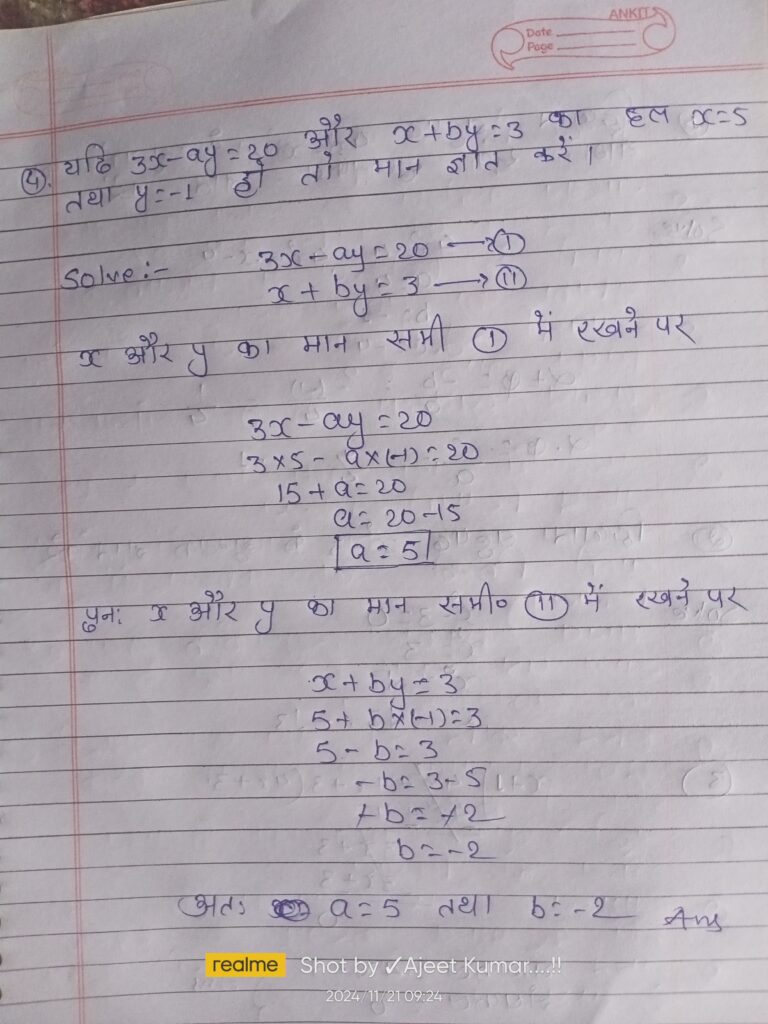 ANKIT
Date
Page
④. यदि 3x-ay=20 और x+by=3 का हल x=5
तथा y=-1 हो तो मान ज्ञात करें।
Solve:- 3x-ay=20 →①
x+by=3 →⑪
x और y का मान समी ① में रखने पर
3x-ay=20
3×5-a×(-1)=20
15+a=20
a=20-15
a=5
पुनः x और y का मान समी० ⑪ में रखने पर
x+by=3
5+b×(-1)=3
5-b=3
-b=3-5
+b=+2
b=-2
अतः a=5 तथा b=-2 Ans
realme Shot by ✓Ajeet Kumar....!!
2024/11/21 09:24